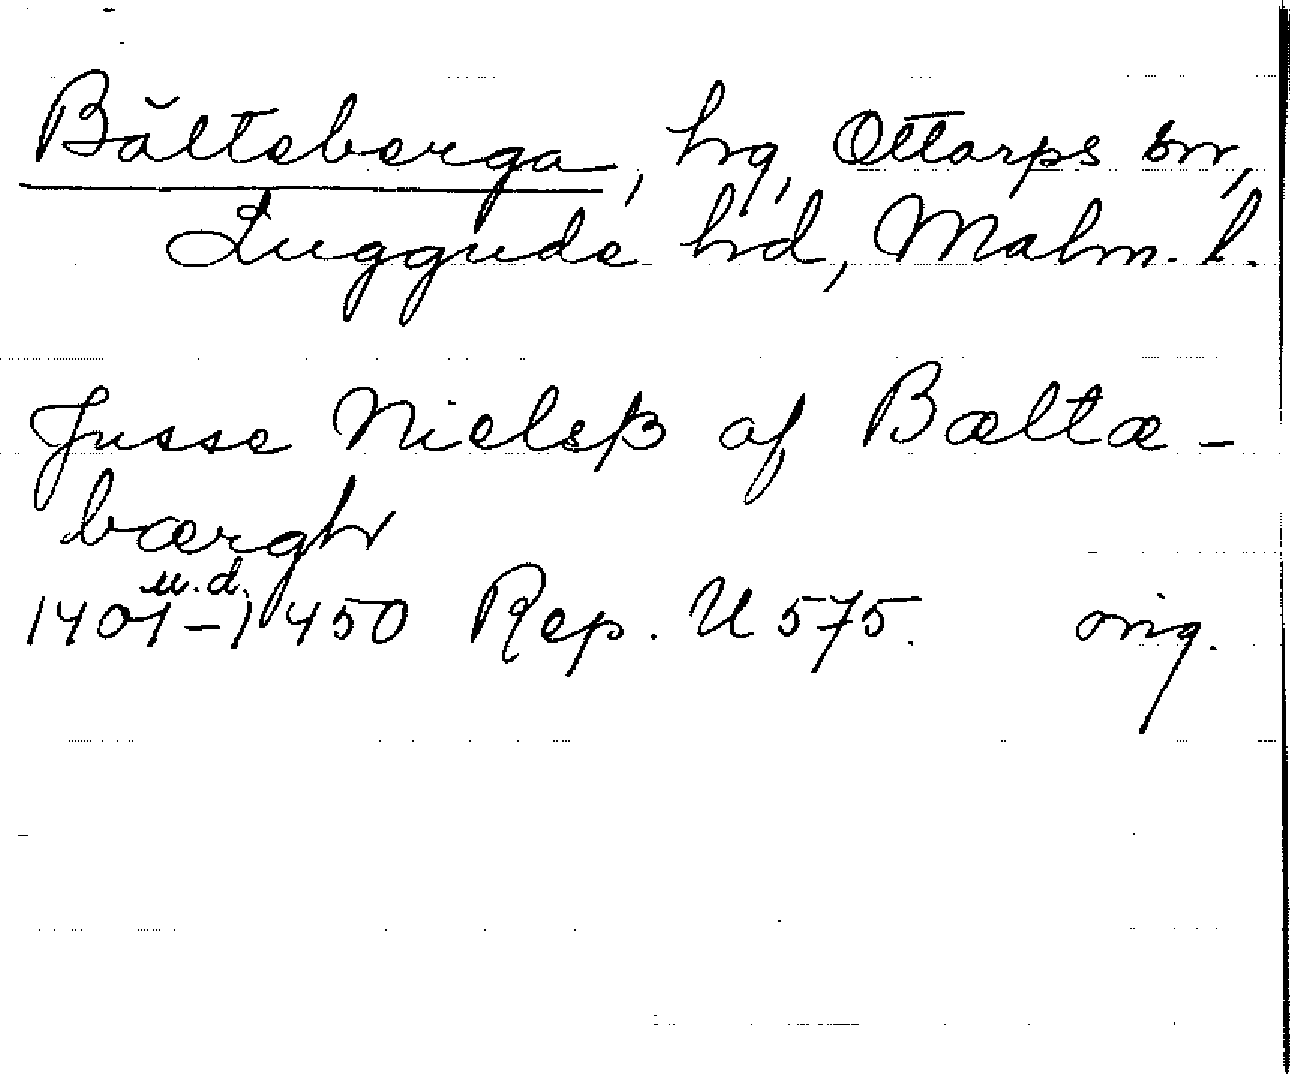 Bälteberga, hrg, Ottarps sn,
Luggude hd, Malm. l.
Jusse Nielsß af Bæltæ-
bærgh
u.d.
1401-1450 Rep. II 575. orig.